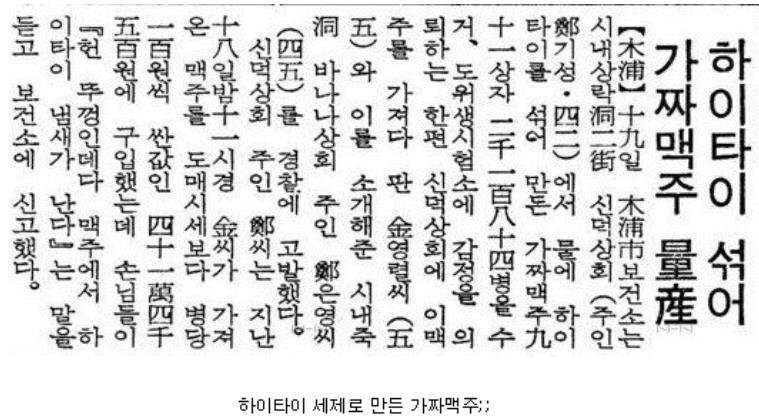 하이타이 섞어
가짜맥주 量産
【木浦】十九일 木浦市보건소는
시내상락洞二街 신덕상회(주인
鄭기성·四二)에서 물에 하이
타이를 섞어 만든 가짜맥주九
十一상자 二千一百八十四병을 수
거、도위생시험소에 감정을 의
뢰하는 한편 신덕상회에 이맥
주를 가져다 판 金영렬씨(五
五)와 이를 소개해준 시내죽
洞 바나나상회 주인 鄭은영씨
(四五)를 경찰에 고발했다。
신덕상회 주인 鄭씨는 지난
十八일밤十一시경 金씨가 가져
온 맥주를 도매시세보다 병당
一百원씩 싼값인 四十一萬四千
五百원에 구입했는데 손님들이
『헌 뚜껑인데다 맥주에서 하
이타이 냄새가 난다』는 말을
듣고 보건소에 신고했다。
하이타이 세제로 만든 가짜맥주;;